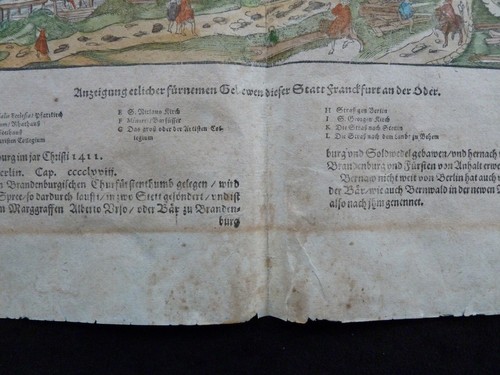 Anzeigung etlicher fürnemen Gebewen dieser Statt Franckfurt an der Oder.
E S. Niclaus Kirch
F Minores/Barfüsser
G Das groß oder der Artisten Col-
legium
H Straß gen Berlin
I S. Georgen Kirch
K Die Straß nach Stettin
L Die Straß nach dem Lande zu Behem
Pfarrkirch
Rhathaus
Collegium
burg im jar Christi 1411.
Berlin. Cap. cccclviij.
Brandenburgischen Churfürstenthumb gelegen/wird
Spree/so dardurch laufft/in zwo Stett gesöndert/und ist
Marggraffen Alberto Urso/oder Bär zu Branden-
burg
burg und Soldwedel gebawen/und hernach
Brandenburg und Fürsten von Anhalt
Bernaw nicht weit von Berlin hat auch
der Bär/wie auch Bernwald in der newen
also nach jhm genennet.